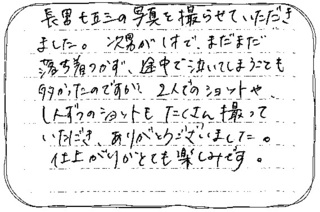 長男七五三の写真を撮らせていただき
ました。次男が1才で、まだまだ
落ち着つかず、途中で泣いてしまうことも
多かったのですが、2人でのショットや、
1人ずつのショットも たくさん撮って
いただき、ありがとうございました。
仕上がりがとても楽しみです。